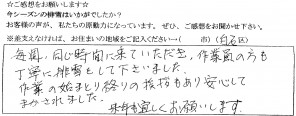 ☆ご感想をお願いします☆
今シーズンの排雪はいかがでしたか？
お客様の声が、私たちの原動力になっています。ぜひ、ご感想をお聞かせ下さい。
※差支えなければ、お住まいの地域をご記入ください→（　　　市）（白石区）
毎週、同じ時間に来ていただき、作業員の方も
丁寧に排雪をして下さいました。
作業の始まりと終りの挨拶もあり安心して
まかされました。
来年も宜しくお願いします。